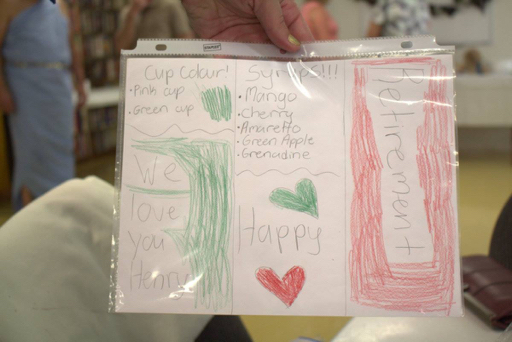 Cup Colour!
• Pink cup
• Green cup
We
love
you
Henry
Syrups!!!
• Mango
• Cherry
• Amaretto
• Green Apple
• Grenadine
Happy
Retirement